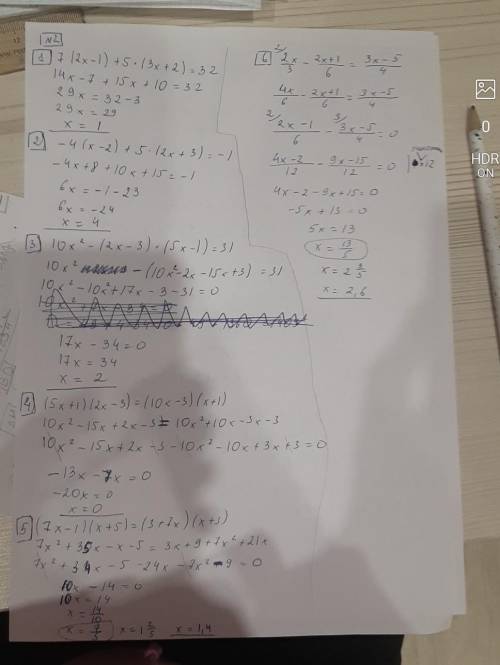 №2
1 7(2x-1)+5·(3x+2)=32
14x-7+15x+10=32
29x=32-3
29x=29
x=1
2 -4(x-2)+5·(2x+3)=-1
-4x+8+10x+15=-1
6x=-1-23
6x=-24
x=4
3 10x²-(2x-3)·(5x-1)=31
10x² -(10x²-2x-15x+3)=31
10x²-10x²+17x-3-31=0
17x-34=0
17x=34
x=2
4 (5x+1)(2x-3)=(10x-3)(x+1)
10x²-15x+2x-3=10x²+10x-3x-3
10x²-15x+2x-3-10x²-10x+3x+3=0
-13x-7x=0
-20x=0
x=0
5 (7x-1)(x+5)=(3+7x)(x+3)
7x²+35x-x-5=3x+9+7x²+21x
7x²+34x-5-24x-7x²-9=0
10x-14=0
10x=14
x=14/10
x=7/5 x=1 2/5 x=1,4
6 2/ 2x/3 - 2x+1/6 = 3x-5/4
4x/6 - 2x+1/6 = 3x-5/4
2/ 2x-1/6 - 3/ 3x-5/4 = 0
4x-2/12 - 9x-15/12 = 0 |·12
4x-2-9x+15=0
-5x+13=0
5x=13
x=13/5
x=2 3/5
x=2,6
0
HDR
ON